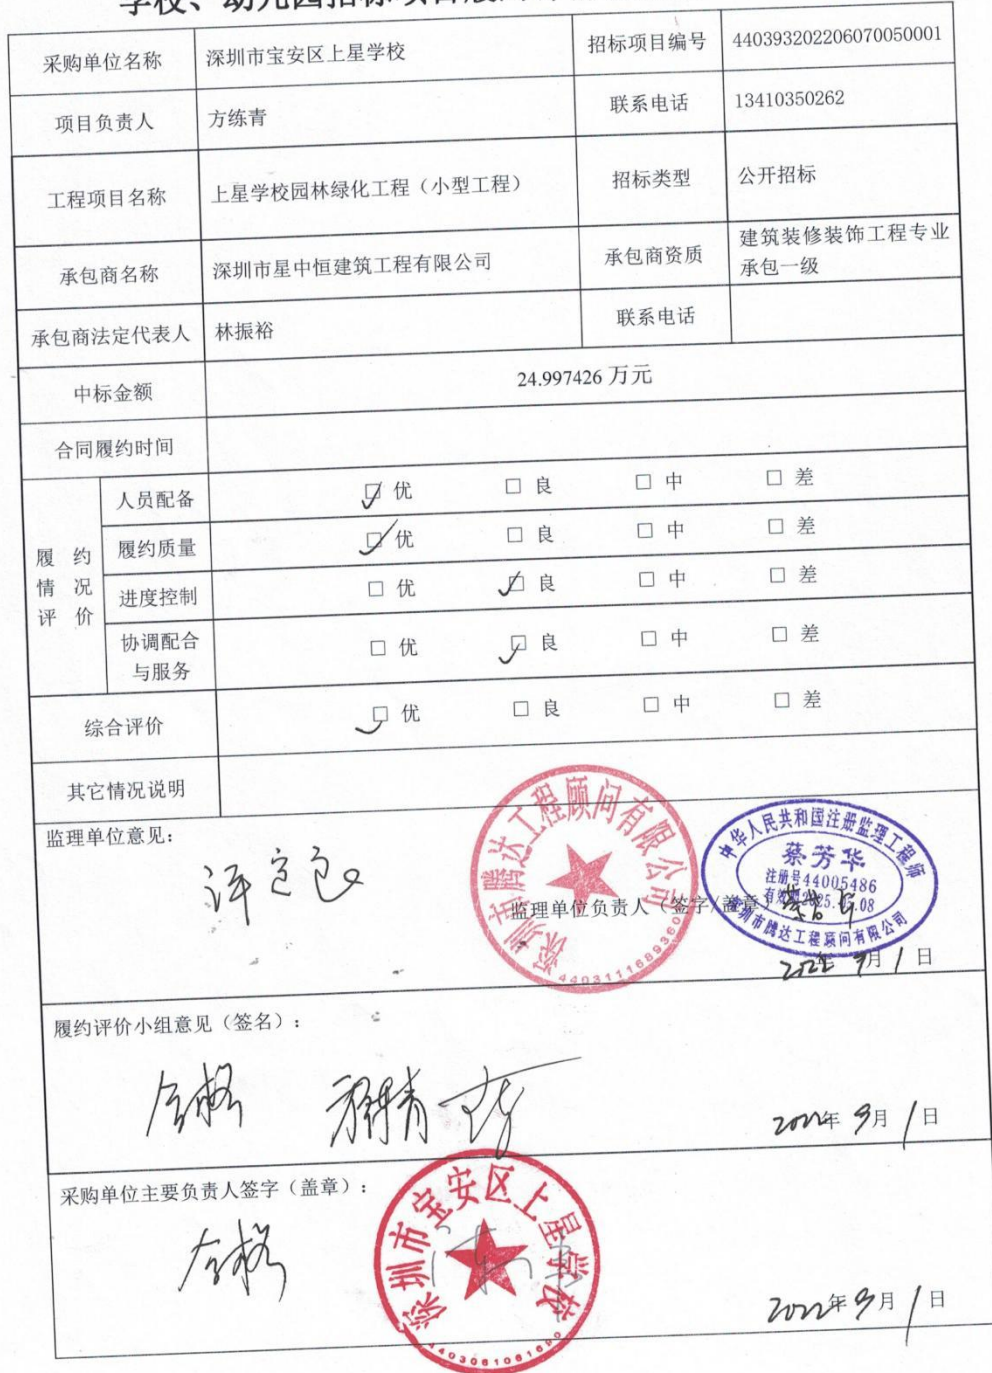 采购单位名称 深圳市宝安区上星学校 招标项目编号 440393202206070050001
项目负责人 方练青 联系电话 13410350262
工程项目名称 上星学校园林绿化工程（小型工程） 招标类型 公开招标
承包商名称 深圳市星中恒建筑工程有限公司 承包商资质 建筑装修装饰工程专业
承包一级
承包商法定代表人 林振裕 联系电话
中标金额 24.997426 万元
合同履约时间
履约
情况
评价
人员配备 ☑ 优 □ 良 □ 中 □ 差
履约质量 ☑ 优 □ 良 □ 中 □ 差
进度控制 □ 优 ☑ 良 □ 中 □ 差
协调配合
与服务 □ 优 ☑ 良 □ 中 □ 差
综合评价 ☑ 优 □ 良 □ 中 □ 差
其它情况说明
监理单位意见：
深圳市腾达工程顾问有限公司
4403111689360
中华人民共和国注册监理工程师
蔡芳华
注册号44005486
深圳市腾达工程顾问有限公司
监理单位负责人（签字/盖章）
2022年 9月 1日
履约评价小组意见（签名）：
合格
2022年 9月 1日
采购单位主要负责人签字（盖章）：
合格
深圳市宝安区上星学校
2022年 9月 1日